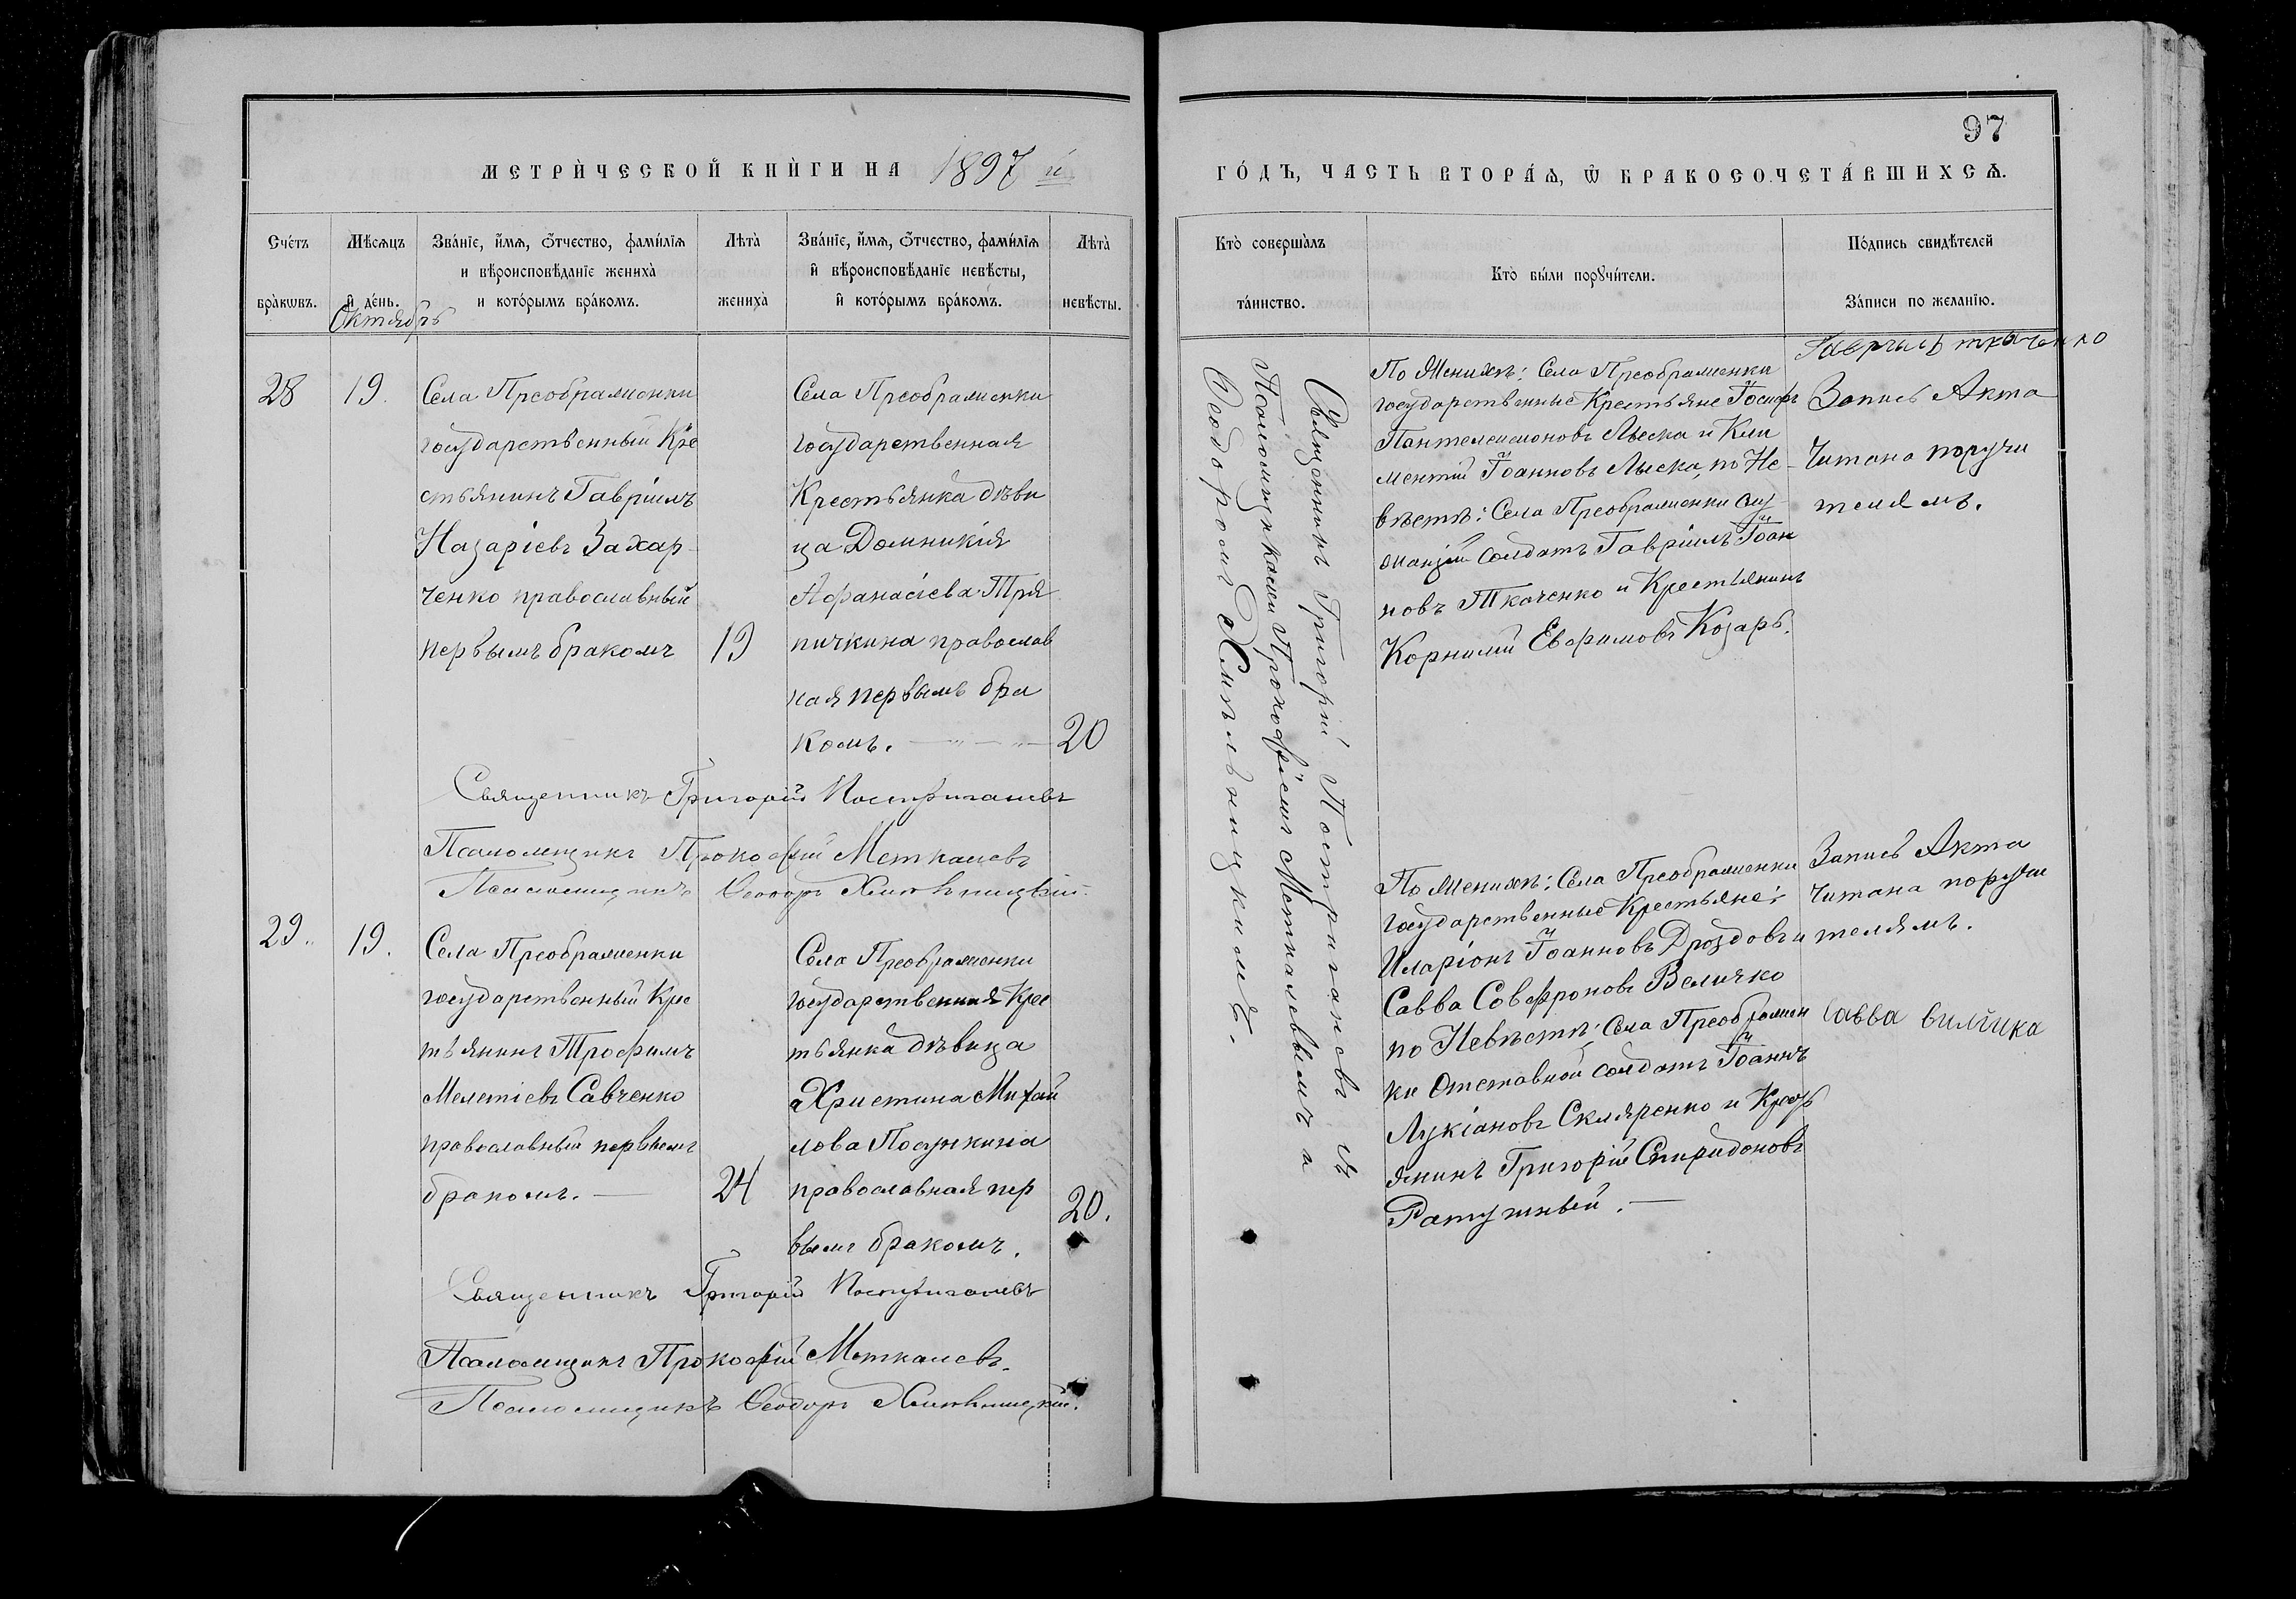 97
МЕТРИ́ЧЕСКОЙ КНИ́ГИ НА 1897 й
ГО́ДЪ, ЧАСТЬ ВТОРА́Ѧ, Ѽ БРАКОСОЧЕТА́ВШИХСѦ.
Сче́тъ
бра̀кѡвъ.
Мѣ́сѧцъ
и҆ де́нь.
Октябрь
Зва́нїе, и҆́мѧ, ѻ҆́тчество, фами́лїѧ
и вѣроисповѣ́данїе жениха̀
и кото́рымъ бра́комъ.
Лѣта̀
жениха̀
Зва́нїе, и҆́мѧ, ѻ҆́тчество, фами́лїѧ
и҆ вѣроисповѣ́данїе невѣ́сты,
и҆ кото́рымъ бра́комъ.
Лѣта̀
невѣ́сты.
Кто̀ соверша̀лъ
та́инство.
Кто̀ бы́ли порꙋчи́тели.
По́дпись свидѣ́телей
За́писи по жела́нїю.
28
19.
Села Преображенки
государственный Кре
стьянинъ Гавріилъ
Назаріевъ Захар-
ченко православный
первымъ бракомъ
19
Села Преображенки
государственная
Крестьянка дѣви
ца Домникія
Афанасіева Тря
пичкина православ
ная первымъ бра
комъ.
20
Священникъ Григорій Постригачевъ
Псаломщикъ Прокофій Меткалевъ
Псаломщикъ Ѳеодоръ Хмѣльницкій.
29.
19.
Села Преображенки
государственный Крес
тьянинъ Трофимъ
Мелетіевъ Савченко
православный первымъ
бракомъ.
24
Села Преображенки
государственная Крес
тьянка дѣвица
Христина Михай
лова
православная пер
вымъ бракомъ.
20.
Священникъ Григорій Постригачевъ
Псаломщикъ Прокофій Меткалевъ.
Псаломщикъ Ѳеодоръ Хмѣльницкій.
Священникъ Григорій Постригачевъ съ
Псаломщиками Прокофіемъ Меткалевымъ и
Ѳеодоромъ Хмѣльницкимъ.
По Женихѣ: Села Преображенки
государственные Крестьяне Іосифъ
Пантелеимоновъ Лыска и Кли
ментій Іоанновъ Лыска, по Не-
вѣстѣ: Села Преображенки
солдатъ Гавріилъ Іоан
новъ Ткаченко и Крестьянинъ
Корнилій Евфимовъ Козарь.
Гаврилъ ткаченко
Запись Акта
Читана поручи
телямъ.
По Женихѣ: Села Преображенки
государственные Крестьяне:
Иларіонъ Іоанновъ Дроздовъ и
Савва Софроновъ Величко
по Невѣстѣ: Села Преображен
ки Отставной солдатъ Іоаннъ
Лукіановъ Скляренко и Кресть
янинъ Григорій Спиридоновъ
Ратушный.
Запись Акта
Читана поручи
телямъ.
Савва виличка